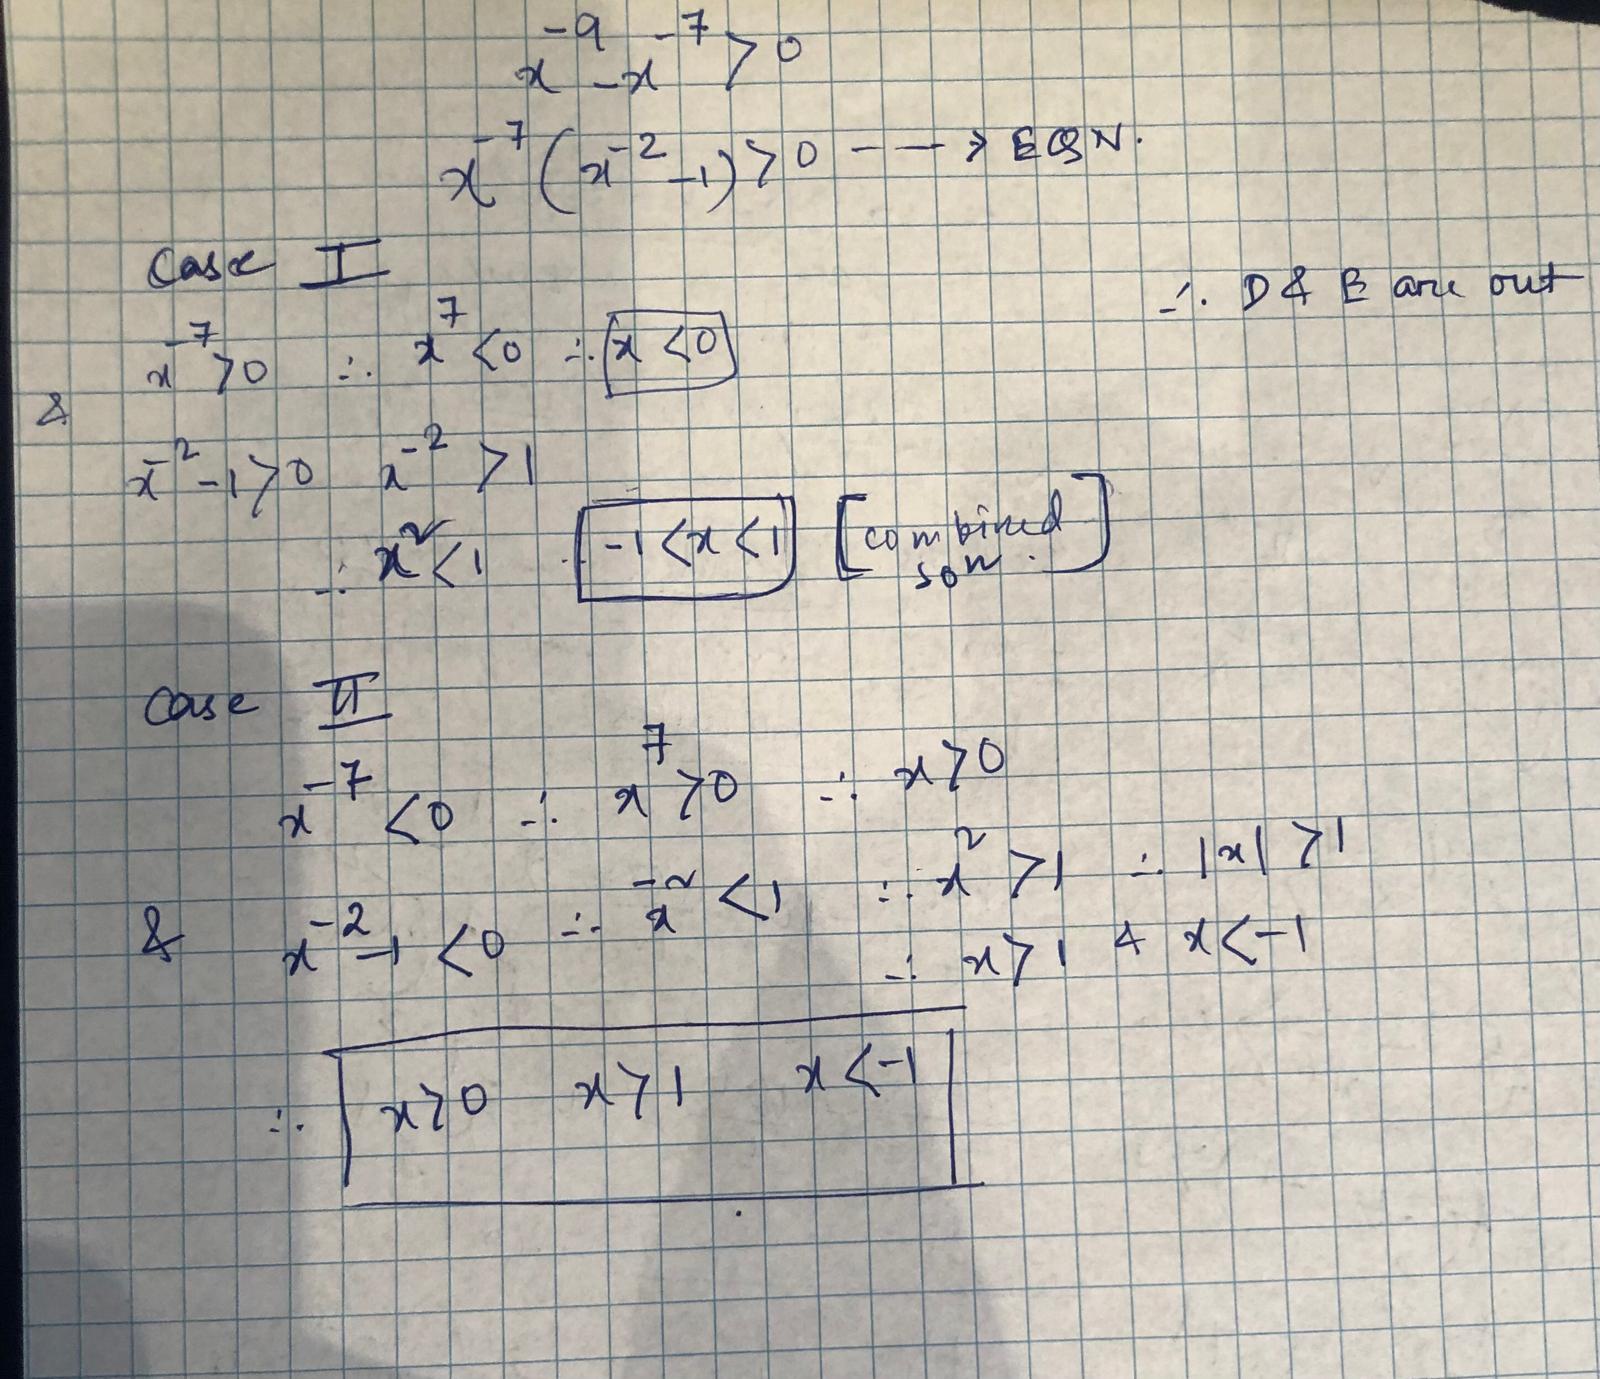 x⁻⁹ - x⁻⁷ > 0
x⁻⁷ (x⁻² - 1) > 0 - - - → EQN.
Case I
∴ D & E are out
x⁻⁷ > 0 ∴ x⁷ < 0 ∴ x < 0
&
x⁻² - 1 > 0 x⁻² > 1
∴ x² < 1 ∴ -1 < x < 1 [combined son.]
Case II
x⁻⁷ < 0 ∴ x⁷ > 0 ∴ x > 0
& x⁻² - 1 < 0 ∴ x⁻² < 1 ∴ x² > 1 ∴ |x| > 1
∴ x > 1 & x < -1
∴ x > 0 x > 1 x < -1